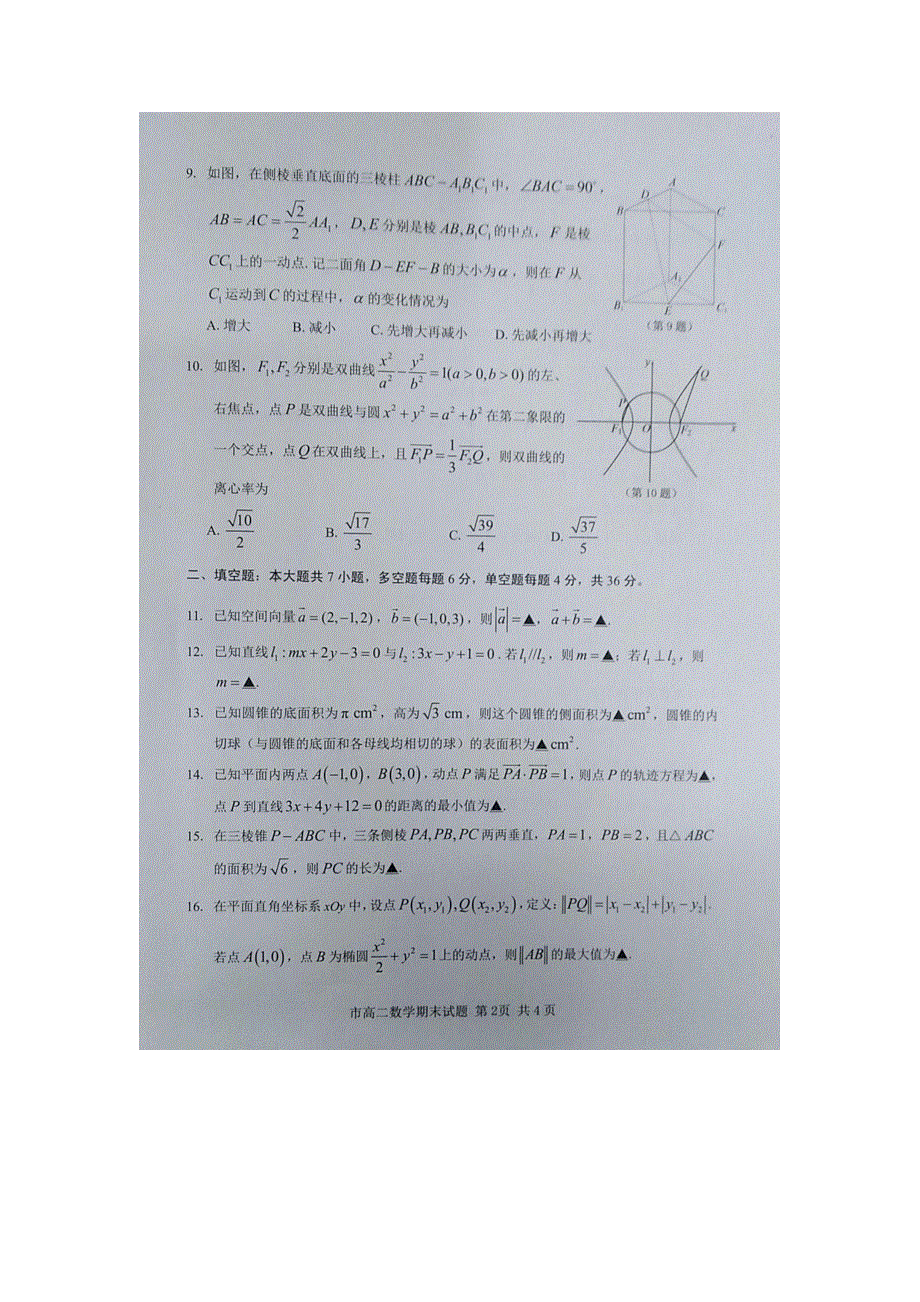 9. 如图，在侧棱垂直底面的三棱柱 ABC − A₁B₁C₁ 中，∠BAC = 90°，
AB = AC = √2/2 AA₁，D, E 分别是棱 AB, B₁C₁ 的中点，F 是棱
CC₁ 上的一动点. 记二面角 D − EF − B 的大小为 α，则在 F 从
C₁ 运动到 C 的过程中，α 的变化情况为
A. 增大 B. 减小 C. 先增大再减小 D. 先减小再增大
A
D
B
C
F
A₁
B₁
E
C₁
（第9题）
10. 如图，F₁, F₂ 分别是双曲线 x²/a² − y²/b² = 1(a > 0, b > 0) 的左、
右焦点，点 P 是双曲线与圆 x² + y² = a² + b² 在第二象限的
一个交点，点 Q 在双曲线上，且 F₁P→ = 1/3 F₂Q→，则双曲线的
离心率为
A. √10/2 B. √17/3 C. √39/4 D. √37/5
y
Q
P
F₁
O
F₂
x
（第10题）
二、填空题：本大题共 7 小题，多空题每题 6 分，单空题每题 4 分，共 36 分。
11. 已知空间向量 a→ = (2, −1, 2)，b→ = (−1, 0, 3)，则 |a→| = ▲，a→ + b→ = ▲.
12. 已知直线 l₁ : mx + 2y − 3 = 0 与 l₂ : 3x − y + 1 = 0 . 若 l₁//l₂，则 m = ▲；若 l₁ ⊥ l₂，则
m = ▲.
13. 已知圆锥的底面积为 π cm²，高为 √3 cm，则这个圆锥的侧面积为▲ cm²，圆锥的内
切球（与圆锥的底面和各母线均相切的球）的表面积为▲ cm².
14. 已知平面内两点 A(−1, 0)，B(3, 0)，动点 P 满足 PA→ · PB→ = 1，则点 P 的轨迹方程为▲，
点 P 到直线 3x + 4y + 12 = 0 的距离的最小值为▲.
15. 在三棱锥 P − ABC 中，三条侧棱 PA, PB, PC 两两垂直，PA = 1，PB = 2，且△ ABC
的面积为 √6，则 PC 的长为▲.
16. 在平面直角坐标系 xOy 中，设点 P(x₁, y₁), Q(x₂, y₂)，定义：‖PQ‖ = |x₁ − x₂| + |y₁ − y₂| .
若点 A(1, 0)，点 B 为椭圆 x²/2 + y² = 1 上的动点，则 ‖AB‖ 的最大值为▲.
市高二数学期末试题 第 2页 共 4 页